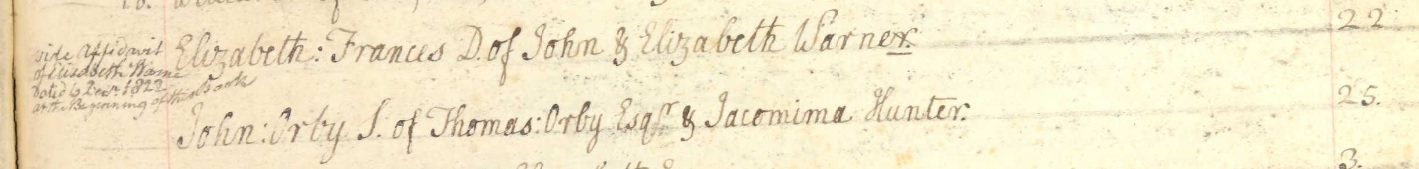 Elizabeth: Frances D. of John & Elizabeth Warner. 22
vide Affidavit
of Elisabeth Warne
Dated 6 Decr. 1822
at the Beginning of this Book
John: Orby S. of Thomas: Orby Esqr. & Jacomima Hunter. 25.
3.